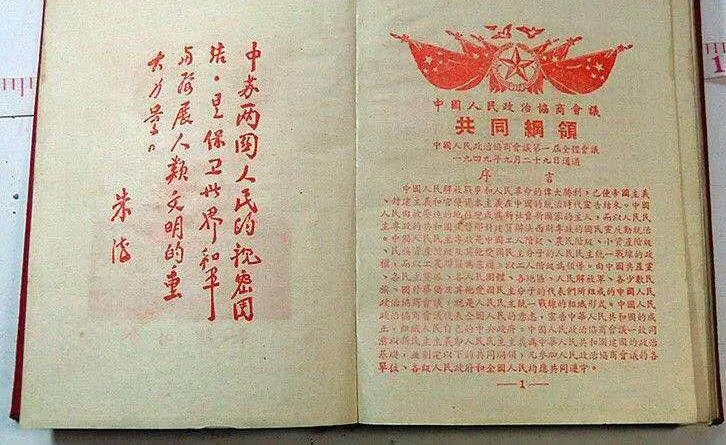 中苏两國人民的親密团
结，是保卫世界和平
与發展人類文明的重
大力量。
朱德
中國人民政治協商會議
共同綱領
中國人民政治協商會議第一屆全體會議
一九四九年九月二十九日通過
序言
中國人民解放戰爭和人民革命的偉大勝利，已使帝國主義
、封建主義和官僚資本主義在中國的統治時代宣告結束。中國
人民由被壓迫的地位變成爲新社會新國家的主人，而以人民民
主專政的共和國代替那封建買辦法西斯專政的國民黨反動統治
。中國人民民主專政是中國工人階級、農民階級、小資產階級
、民族資產階級及其他愛國民主分子的人民民主統一戰線的政權
，而以工農聯盟爲基礎，以工人階級爲領導。由中國共產黨
、各民主黨派、各人民團體、各地區、人民解放軍、各少數民
族、國外華僑及其他愛國民主分子的代表們所組成的中國人民
政治協商會議，就是人民民主統一戰線的組織形式。中國人民
政治協商會議代表全國人民的意志，宣告中華人民共和國的成
立，組織人民自己的中央政府。中國人民政治協商會議一致同
意以新民主主義即人民民主主義爲中華人民共和國建國的政治
基礎，並制定以下的共同綱領，凡參加人民政治協商會議的各
單位、各級人民政府和全國人民均應共同遵守。
—1—